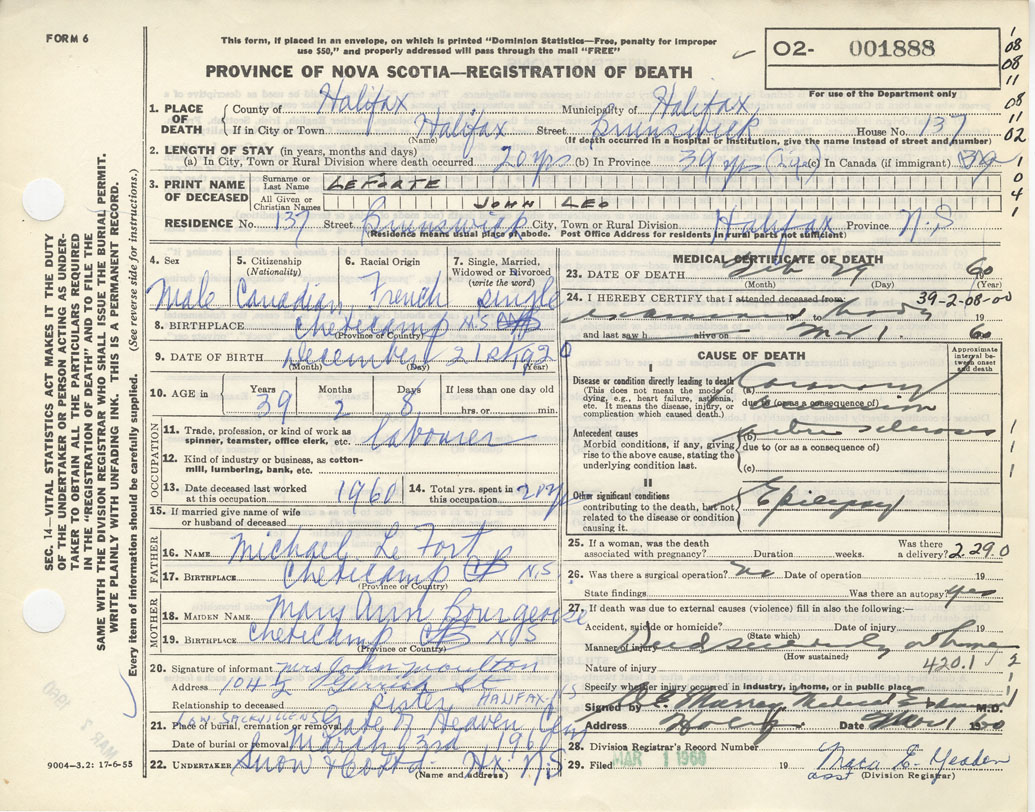 FORM 6
This form, if placed in an envelope, on which is printed "Dominion Statistics—Free, penalty for improper
use $50," and properly addressed will pass through the mail "FREE"
PROVINCE OF NOVA SCOTIA—REGISTRATION OF DEATH
02- 001888
For use of the Department only
08
08
11
08
11
02
1
0
4
1
1. PLACE OF DEATH County of Halifax Municipality of Halifax
If in City or Town Halifax Street Brunswick House No. 137
(Name) (If death occurred in a hospital or institution, give the name instead of street and number)
2. LENGTH OF STAY (in years, months and days)
(a) In City, Town or Rural Division where death occurred 20 yrs (b) In Province 39 yrs (c) In Canada (if immigrant)
3. PRINT NAME OF DECEASED Surname or Last Name LEFORTE
All Given or Christian Names JOHN LEO
RESIDENCE No. 137 Street Brunswick City, Town or Rural Division Halifax Province N.S
(Residence means usual place of abode. Post Office Address for residents in rural parts not sufficient)
4. Sex 5. Citizenship (Nationality) 6. Racial Origin 7. Single, Married, Widowed or Divorced (write the word)
Male Canadian French single
8. BIRTHPLACE Cheticamp N.S
(Province or Country)
9. DATE OF BIRTH December 21st 1920
(Month) (Day) (Year)
10. AGE in Years Months Days If less than one day old
39 2 8 hrs. or min.
OCCUPATION
11. Trade, profession, or kind of work as spinner, teamster, office clerk, etc. labourer
12. Kind of industry or business, as cotton-mill, lumbering, bank, etc.
13. Date deceased last worked at this occupation 1960 14. Total yrs. spent in this occupation 20 yrs
15. If married give name of wife or husband of deceased
FATHER
16. NAME Michael Le Fort
17. BIRTHPLACE Cheticamp N.S
(Province or Country)
MOTHER
18. MAIDEN NAME Mary Ann Bourgeoise
19. BIRTHPLACE Cheticamp N S
(Province or Country)
20. Signature of informant Mrs John Moulton
Address 104½ Gerrish St
HALIFAX N S
Relationship to deceased Sister
21. Place of burial, cremation or removal Gate of Heaven Cem
SACKVILLE NS
Date of burial or removal March 3rd 1960
22. UNDERTAKER Snow Hx N.S
(Name and address)
MEDICAL CERTIFICATE OF DEATH
23. DATE OF DEATH Feb 29 60
(Month) (Day) (Year)
24. I HEREBY CERTIFY that I attended deceased from: 39-2-08-00
examined to body 19
and last saw h alive on Mar 1. 60
CAUSE OF DEATH
Approximate interval between onset and death
I
Disease or condition directly leading to death
(This does not mean the mode of dying, e.g., heart failure, asthenia, etc. It means the disease, injury, or complication which caused death.)
(a) Coronary
due to (or as a consequence of)
Antecedent causes
Morbid conditions, if any, giving rise to the above cause, stating the underlying condition last.
(b)
due to (or as a consequence of)
(c)
1
1
1
II
Other significant conditions
contributing to the death, but not related to the disease or condition causing it.
Epilepsy
25. If a woman, was the death associated with pregnancy? Duration weeks. Was there a delivery? 2290
26. Was there a surgical operation? no Date of operation 19
State findings Was there an autopsy? yes
27. If death was due to external causes (violence) fill in also the following:—
Accident, suicide or homicide? Date of injury 19
(State which)
Manner of injury Died suddenly at home
(How sustained)
Nature of injury 420.1
Specify whether injury occurred in industry, in home, or in public place
Signed by Murray Medical Examiner M.D.
Address Date Mar 1 1960
28. Division Registrar's Record Number
29. Filed MAR 1 1960 19
asst (Division Registrar)
SEC. 14—VITAL STATISTICS ACT MAKES IT THE DUTY
OF THE UNDERTAKER OR PERSON ACTING AS UNDER-
TAKER TO OBTAIN ALL THE PARTICULARS REQUIRED
IN THE "REGISTRATION OF DEATH" AND TO FILE THE
SAME WITH THE DIVISION REGISTRAR WHO SHALL ISSUE THE BURIAL PERMIT.
WRITE PLAINLY WITH UNFADING INK. THIS IS A PERMANENT RECORD.
Every item of information should be carefully supplied. (See reverse side for instructions.)
MAR 2 1960
9004-3.2: 17-6-55